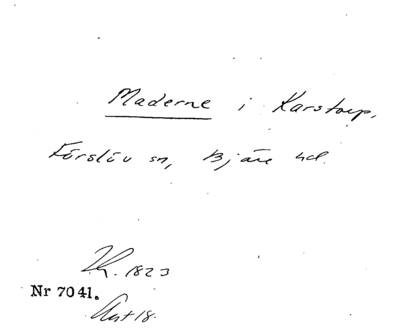 Maderne i Karstorp,
Förslöv sn, Bjäre hd.
Lh. 1823
Nr 7041.
Akt 18.